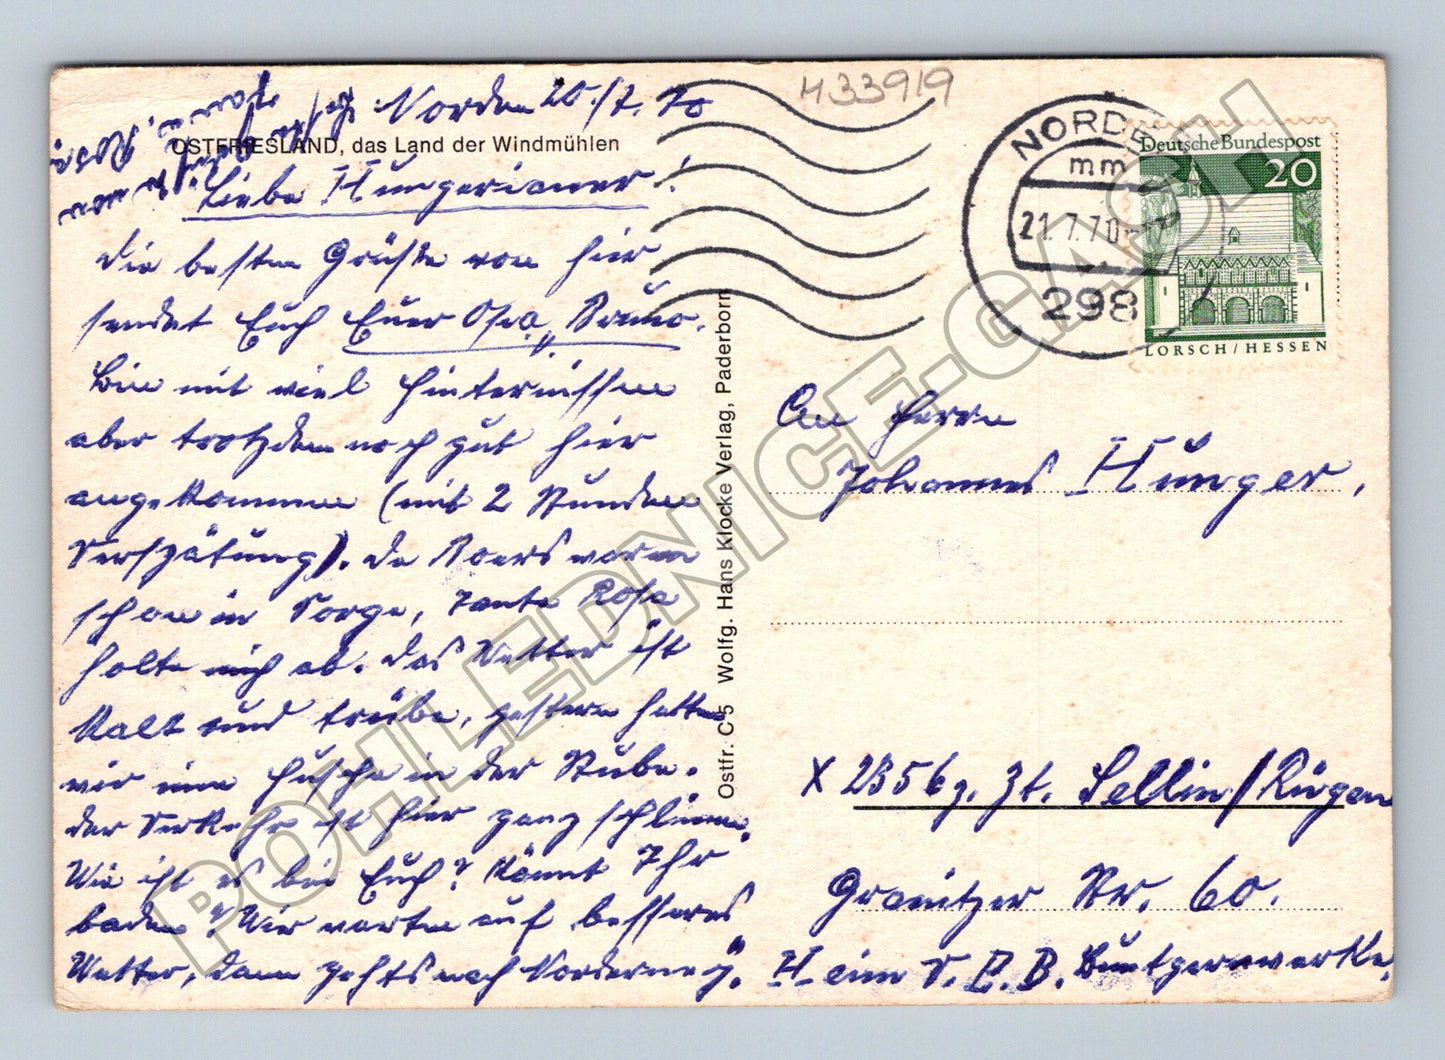 Norden 20./7. 70
OSTFRIESLAND, das Land der Windmühlen
Liebe Hungerianer!
Die besten Grüße von hier
sendet Euch Euer Opa, Bruno.
Bin mit viel Hindernissen
aber trotzdem noch gut hier
angekommen (mit 2 Stunden
Verspätung). Da Boers waren
schon in Sorge, Tante Rosa
holte mich ab. Das Wetter ist
kalt und trübe, gestern hatten
wir eine Husche in der Stube.
Der Verkehr ist hier ganz schlimm.
Wie ist es bei Euch? Könnt Ihr
baden? Wir warten auf besseres
Wetter, dann gehts nach Norderney.
Ostfr. C 5 Wolfg. Hans Klocke Verlag, Paderborn
433919
NORDEN
mm
21.7.70-17
298
Deutsche Bundespost
20
LORSCH/HESSEN
An Herrn
Johannes Hunger,
X 2356 z. Zt. Sellin/Rügen
Granitzer Str. 60.
Heim V.E.B. Buntgarnwerke.
POHLEDNICE-GASH